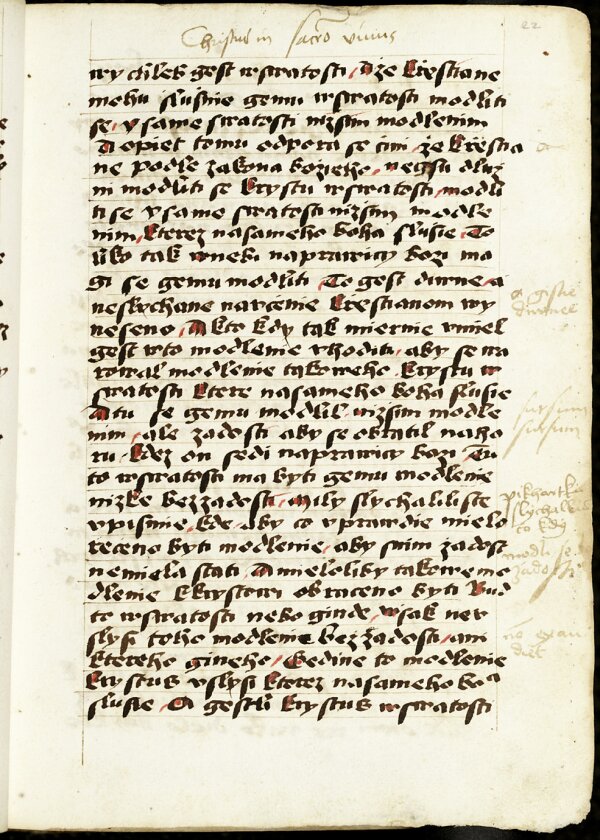 Christus in sacro vivus
22
wy chleb gest w swatosti, A ze krestiane
mohu slusnie gemu w swatosti modliti
se, y same swatosti nizsim modlenim
A opiet tomu odpora se cini, ze krestia
ne podle zakona bozieho, negsu dluz
ni modliti se krystu w swatosti, modli
ti se y same swatosti nizsim modle
nim, kterez na sameho boha slusie, To
liko tak w nebi na prawicy bozi ma
gi se gemu modliti, To gest diwne, a
neslychane naucenie krestianom wy
neseno, A kto kdy tak miernie umiel
gest w to modlenie uhoditi, aby se wa
rowal modlenie takoweho krystu w
swatosti ktere na sameho boha slusie
A tu se gemu modlil nizsim modle
nim, ale zadosti aby se obratil naho
ru, kdez on sedi na prawicy bozi, Tu
to w swatosti ma byti gemu modlenie
nizke bez zadosti, mily slychaliliste
w pismie, kde, aby co w prawdie mielo
receno byti modlenie, aby snim zadost
nemiela stati, A mieloliby takowe mo
dlenie k krystowi obraceno byti Bud
to w swatosti nebo ginde, wsak ney
slysi toho modlenie bez zadosti, ani
ktereho gineho, Gedine to modlenie
krystus uslysi kterez na sameho boa
slusie, A gestli krystus w swatosti
a gistie
diwnee
sursum
sursum
pikhartka
slychal
co kdy
modli se
zadosti
no exau
diet